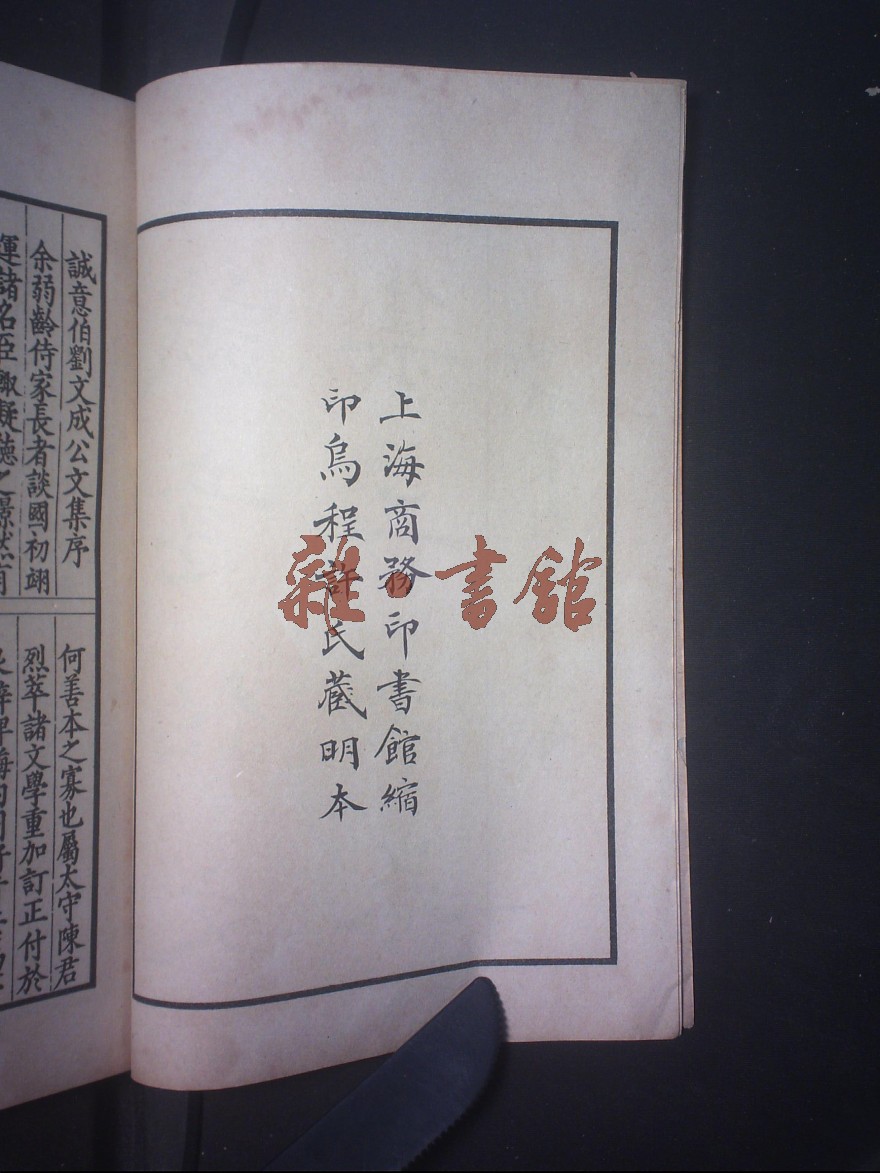 上海商務印書館縮
印烏程許氏藏明本
雜·書館
誠意伯劉文成公文集序
余弱齡侍家長者談國初翊
運諸名臣
何善本之寡也屬太守陳君
烈萃諸文學重加訂正付於